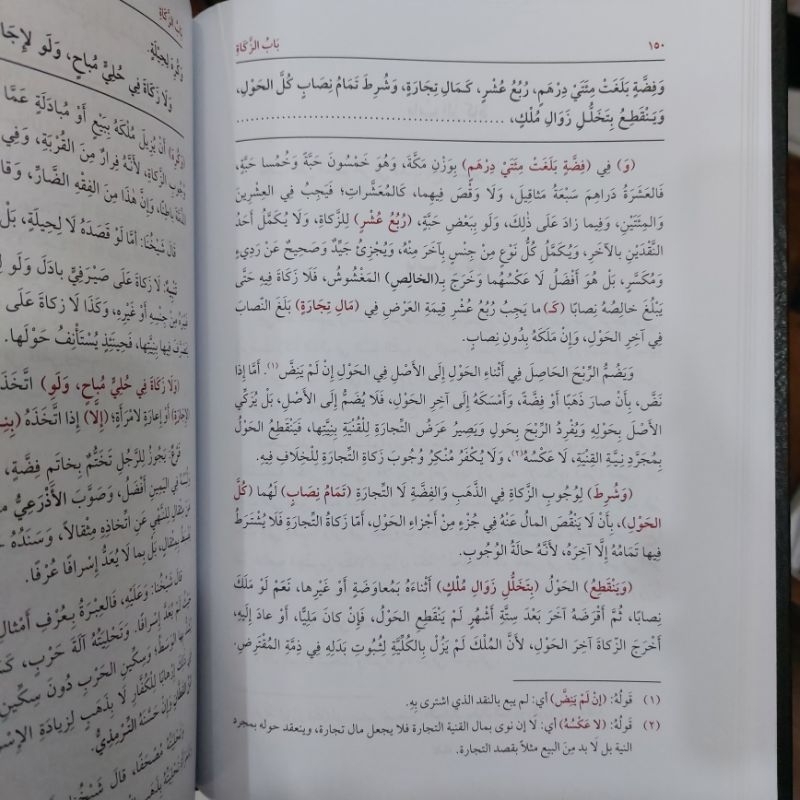 ١٥٠
بَابُ الزَّكَاةِ
وَفِضَّةٍ بَلَغَتْ مِئَتَيْ دِرْهَمٍ، رُبُعُ عُشْرٍ، كَمَالِ تِجَارَةٍ، وَشُرِطَ تَمَامُ نِصَابٍ كُلَّ الحَوْلِ،
وَيَنْقَطِعُ بِتَخَلُّلِ زَوَالِ مُلْكٍ، ................................
(وَ) فِي (فِضَّةٍ بَلَغَتْ مِئَتَيْ دِرْهَمٍ) بِوَزْنِ مَكَّةَ، وَهُوَ خَمْسُونَ حَبَّةً وَخُمْسَا حَبَّةٍ،
فَالعَشَرَةُ دَرَاهِمَ سَبْعَةُ مَثَاقِيلَ، وَلَا وَقْصَ فِيهِمَا، كَالمُعَشَّرَاتِ؛ فَيَجِبُ فِي العِشْرِينَ
وَالمِئَتَيْنِ، وَفِيمَا زَادَ عَلَى ذَلِكَ، وَلَو بِبَعْضِ حَبَّةٍ، (رُبُعُ عُشْرٍ) لِلزَّكاةِ، وَلَا يُكَمَّلُ أَحَدُ
النَّقْدَينِ بِالآخَرِ، وَيُكَمَّلُ كُلُّ نَوْعٍ مِنْ جِنْسٍ بِآخَرَ مِنْهُ، وَيُجْزِئُ جَيِّدٌ وَصَحِيحٌ عَنْ رَدِيءٍ
وَمُكَسَّرٍ، بَلْ هُوَ أَفْضَلُ لَا عَكْسُهُمَا وَخَرَجَ بِـ(الخالِصِ) المَغْشُوشُ، فَلَا زَكَاةَ فِيهِ حَتَّى
يَبْلُغَ خالِصُهُ نِصَابًا (كَـ) ما يَجِبُ رُبُعُ عُشْرِ قِيمَةِ العَرْضِ فِي (مَالِ تِجَارَةٍ) بَلَغَ النِّصابَ
فِي آخِرِ الحَوْلِ، وَإِنْ مَلَكَهُ بِدُونِ نِصَابٍ.
وَيَضُمُّ الرِّبْحَ الحَاصِلَ فِي أَثْنَاءِ الحَوْلِ إِلَى الأَصْلِ فِي الحَوْلِ إِنْ لَمْ يَنِضَّ(١). أَمَّا إِذَا
نَضَّ، بِأَنْ صارَ ذَهَبًا أَوْ فِضَّةً، وَأَمْسَكَهُ إِلَى آخِرِ الحَوْلِ، فَلَا يُضَمُّ إِلَى الأَصْلِ، بَلْ يُزَكِّي
الأَصْلَ بِحَوْلِهِ وَيُفْرِدُ الرِّبْحَ بِحَولٍ وَيَصِيرُ عَرَضُ التِّجارَةِ لِلْقُنْيَةِ بِنِيَّتِها، فَيَنْقَطِعُ الحَوْلُ
بِمُجَرَّدِ نِيَّةِ القِنْيَةِ، لَا عَكْسُهُ(٢)، وَلَا يُكْفَرُ مُنْكِرُ وُجُوبِ زَكَاةِ التِّجَارَةِ لِلْخِلَافِ فِيهِ.
(وَشُرِطَ) لِوُجُوبِ الزَّكاةِ فِي الذَّهَبِ وَالفِضَّةِ لَا التِّجارَةِ (تَمَامُ نِصَابٍ) لَهُما (كُلَّ
الحَوْلِ)، بِأَنْ لَا يَنْقُصَ المالُ عَنْهُ فِي جُزْءٍ مِنْ أَجْزاءِ الحَوْلِ، أَمَّا زَكاةُ التِّجارَةِ فَلَا يُشْتَرَطُ
فِيها تَمَامُهُ إِلَّا آخِرَهُ، لأَنَّهُ حالَةُ الوُجُوبِ.
(وَيَنْقَطِعُ) الحَوْلُ (بِتَخَلُّلِ زَوَالِ مُلْكٍ) أَثْنَاءَهُ بِمُعاوَضَةٍ أَوْ غَيْرِها، نَعَمْ لَوْ مَلَكَ
نِصابًا، ثُمَّ أَقْرَضَهُ آخَرَ بَعْدَ سِتَّةِ أَشْهُرٍ لَمْ يَنْقَطِعِ الحَوْلُ، فَإِنْ كانَ مَلِيًّا، أَوْ عادَ إِلَيهِ،
أَخْرَجَ الزَّكاةَ آخِرَ الحَوْلِ، لأَنَّ المُلْكَ لَمْ يَزُلْ بِالكُلِّيَّةِ لِثُبُوتِ بَدَلِهِ فِي ذِمَّةِ المُقْتَرِضِ.
(١) قَولُهُ: (إِنْ لَمْ يَنِضَّ) أي: لم يبع بالنقد الذي اشترى بِهِ.
(٢) قَولُهُ: (لا عَكْسُهُ) أي: لَا إن نوى بمال القنية التجارة فلا يجعل مال تجارة، وينعقد حوله بمجرد
النية بل لا بد مِنَ البيع مثلاً بقصد التجارة.
بَابُ الزَّكَاةِ
وَلَا زَكَاةَ فِي حُلِيٍّ مُبَاحٍ، وَلَو لِإِجَا
أَنْ يُزِيلَ مُلْكَهُ بِبَيْعٍ أَوْ مُبَادَلَةٍ عَمَّا
الزَّكَاةِ، لأَنَّهُ فِرارٌ مِنَ القُرْبَةِ، وَفِي
وَإِنَّ هَذَا مِنَ الفِقْهِ الضَّارِّ، وَقَا
قَالَ شَيْخُنَا: أَمَّا لَوْ قَصَدَهُ لَا لِحِيلَةٍ، بَلْ
لَا زَكَاةَ عَلَى صَيْرَفِيٍّ بادَلَ وَلَو لِـ
مِنْ جِنْسِهِ أَوْ غَيْرِهِ، وَكَذَا لَا زَكَاةَ عَلَى
فَحِينَئِذٍ يُسْتَأْنَفُ حَوْلُها.
(وَلَا زَكَاةَ فِي حُلِيٍّ مُبَاحٍ، وَلَوِ) اتَّخَذَ
أَوْ إِعارَةٍ لامْرَأَةٍ؛ (إِلَّا) إِذَا اتَّخَذَهُ (بِنِيَّـ
يَجُوزُ لِلرَّجُلِ تَخَتُّمٌ بِخاتَمِ فِضَّةٍ،
فِي اليَمِينِ أَفْضَلُ، وَصَوَّبَ الأَذْرَعِيُّ
عَنِ اتِّخاذِهِ مِثْقالًا، وَسَنَدُهُ
بَلْ بِمَا لَا يُعَدُّ إِسْرافًا عُرْفًا.
قَالَ شَيْخُنَا: وَعَلَيْهِ، فَالعِبْرَةُ بِعُرْفِ أَمْثالِـ
إِسْرافًا. وَتَحْلِيَتُهُ آلَةَ حَرْبٍ، كَسَـ
وَسِكِّينِ الحَرْبِ دُونَ سِكِّينِ
لِلْكُفَّارِ لَا بِذَهَبٍ لِزِيادَةِ الإِسْرَ
وَإِنْ حَسَّنَهُ التِّرْمِذِيُّ.
مُصْحَفًا، قَالَ شَيْخُـ